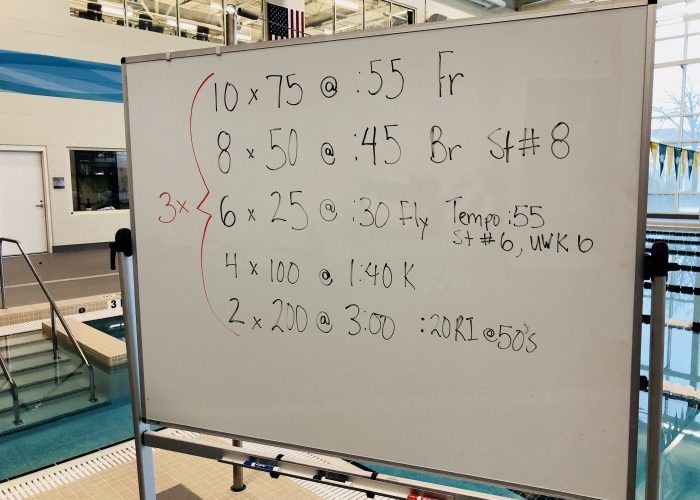 10 x 75 @ :55 Fr
8 x 50 @ :45 Br St # 8
3x
6 x 25 @ :30 Fly Tempo :55
St # 6, UWK 6
4 x 100 @ 1:40 K
2 x 200 @ 3:00 :20 RI @ 50's
3